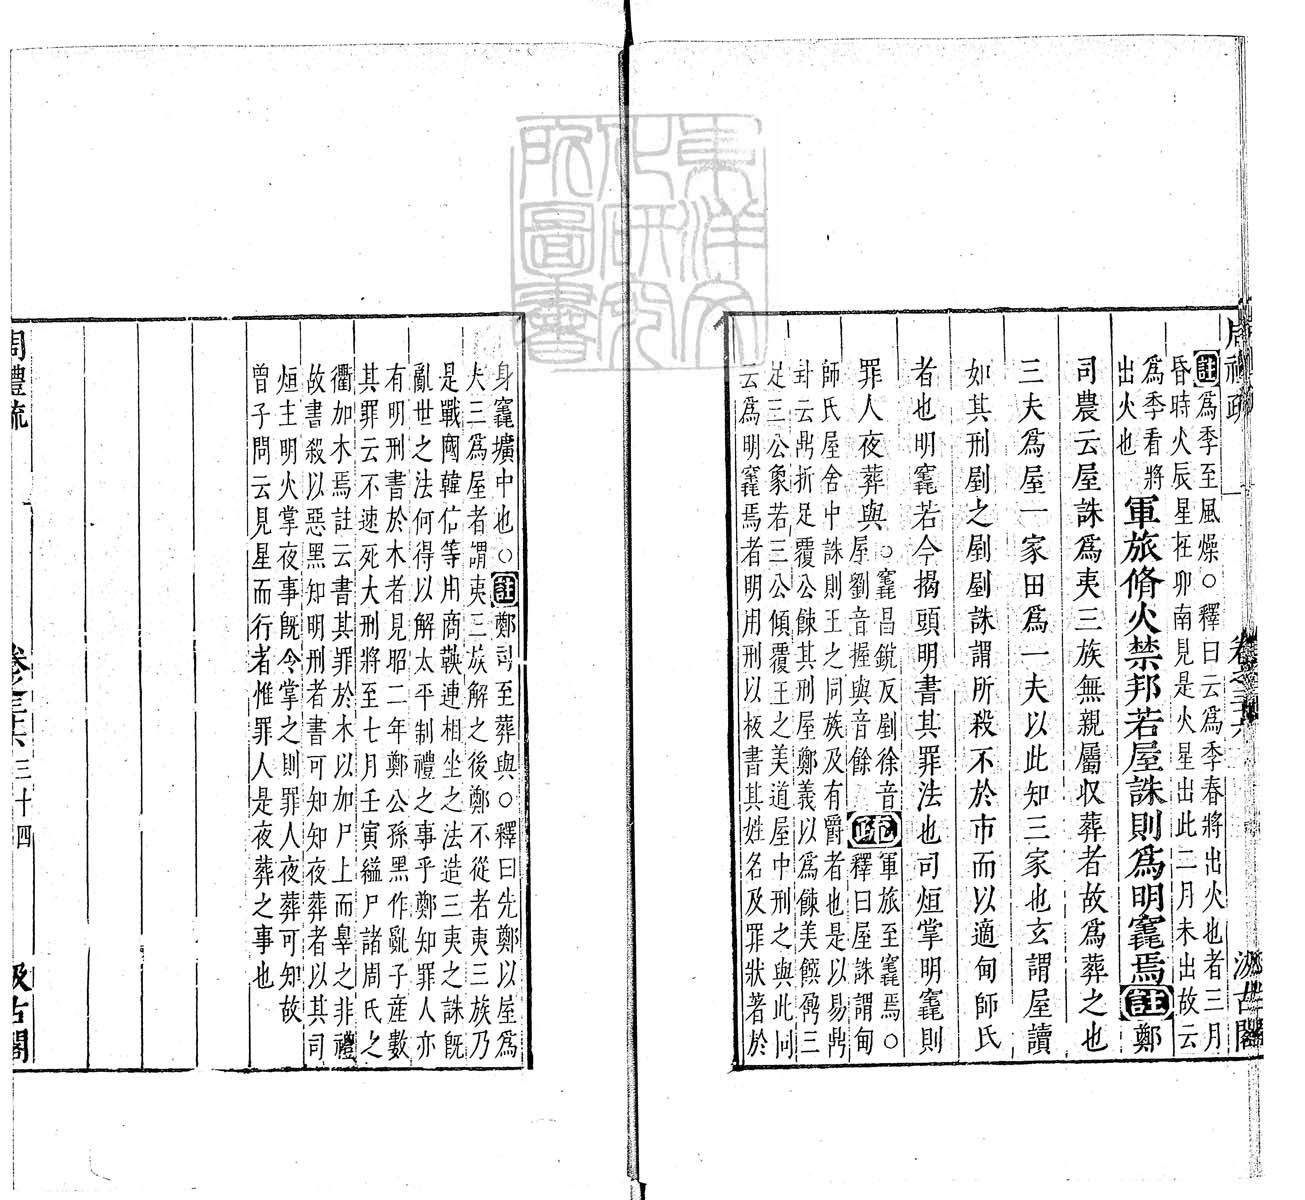 周禮疏
卷之三十六
汲古閣
註爲季至風燥○釋曰云爲季春將出火也者三月
昏時火辰星在卯南見是火星出此二月未出故云
爲季春將
出火也
軍旅脩火禁邦若屋誅則爲明竁焉註鄭
司農云屋誅爲夷三族無親屬収葬者故爲葬之也
三夫爲屋一家田爲一夫以此知三家也玄謂屋讀
如其刑剭之剭剭誅謂所殺不於市而以適甸師氏
者也明竁若今揭頭明書其罪法也司烜掌明竁則
罪人夜葬與
○竁昌銳反剭徐音
屋劉音握與音餘
疏軍旅至竁焉○
釋曰屋誅謂甸
師氏屋舍中誅則王之同族及有爵者也是以易鼎
卦云鼎折足覆公餗其刑屋鄭義以爲餗美饌鼎三
足三公象若三公傾覆王之美道屋中刑之與此同
云爲明竁焉者明用刑以板書其姓名及罪狀著於
身竁壙中也○註鄭司至葬與○釋曰先鄭以屋爲
夫三爲屋者謂夷三族解之後鄭不從者夷三族乃
是戰國韓信等用商鞅連相坐之法造三夷之誅旣
亂世之法何得以解太平制禮之事乎鄭知罪人亦
有明刑書於木者見昭二年鄭公孫黑作亂子產數
其罪云不速死大刑將至七月壬寅縊尸諸周氏之
衢加木焉註云書其罪於木以加尸上而辠之非禮
故書殺以惡黑知明刑者書可知知夜葬者以其司
烜主明火掌夜事旣令掌之則罪人夜葬可知故
曾子問云見星而行者惟罪人是夜葬之事也
周禮疏
卷之三十六
三十四
汲古閣
東洋文
化研究
所圖書